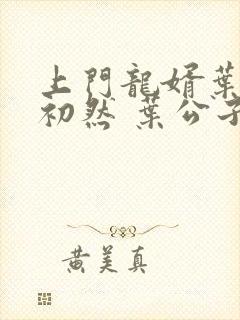 上門龍婿葉
初然 葉公子
黃美真